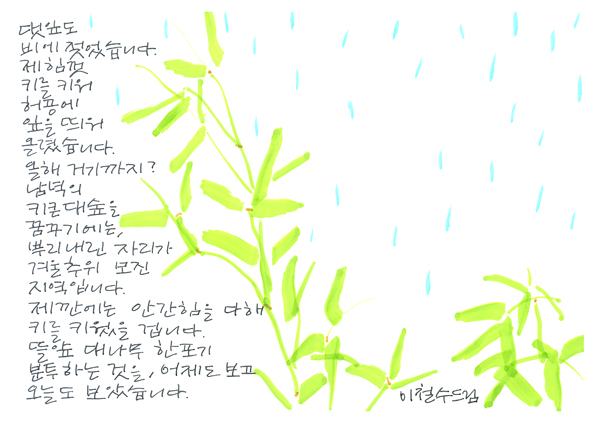 댓잎도
비에 젖었습니다.
제힘껏
키를 키워
허공에
잎을 띄워
올렸습니다.
올해 거기까지?
남녘의
키큰대숲을
꿈꾸기에는,
뿌리내린 자리가
겨울추위 모진
지역입니다.
제깐에는 안간힘을 다해
키를 키웠을 겁니다.
뜰앞 대나무 한포기
분투하는 것을, 어제도 보고
오늘도 보았습니다.
이철수드림